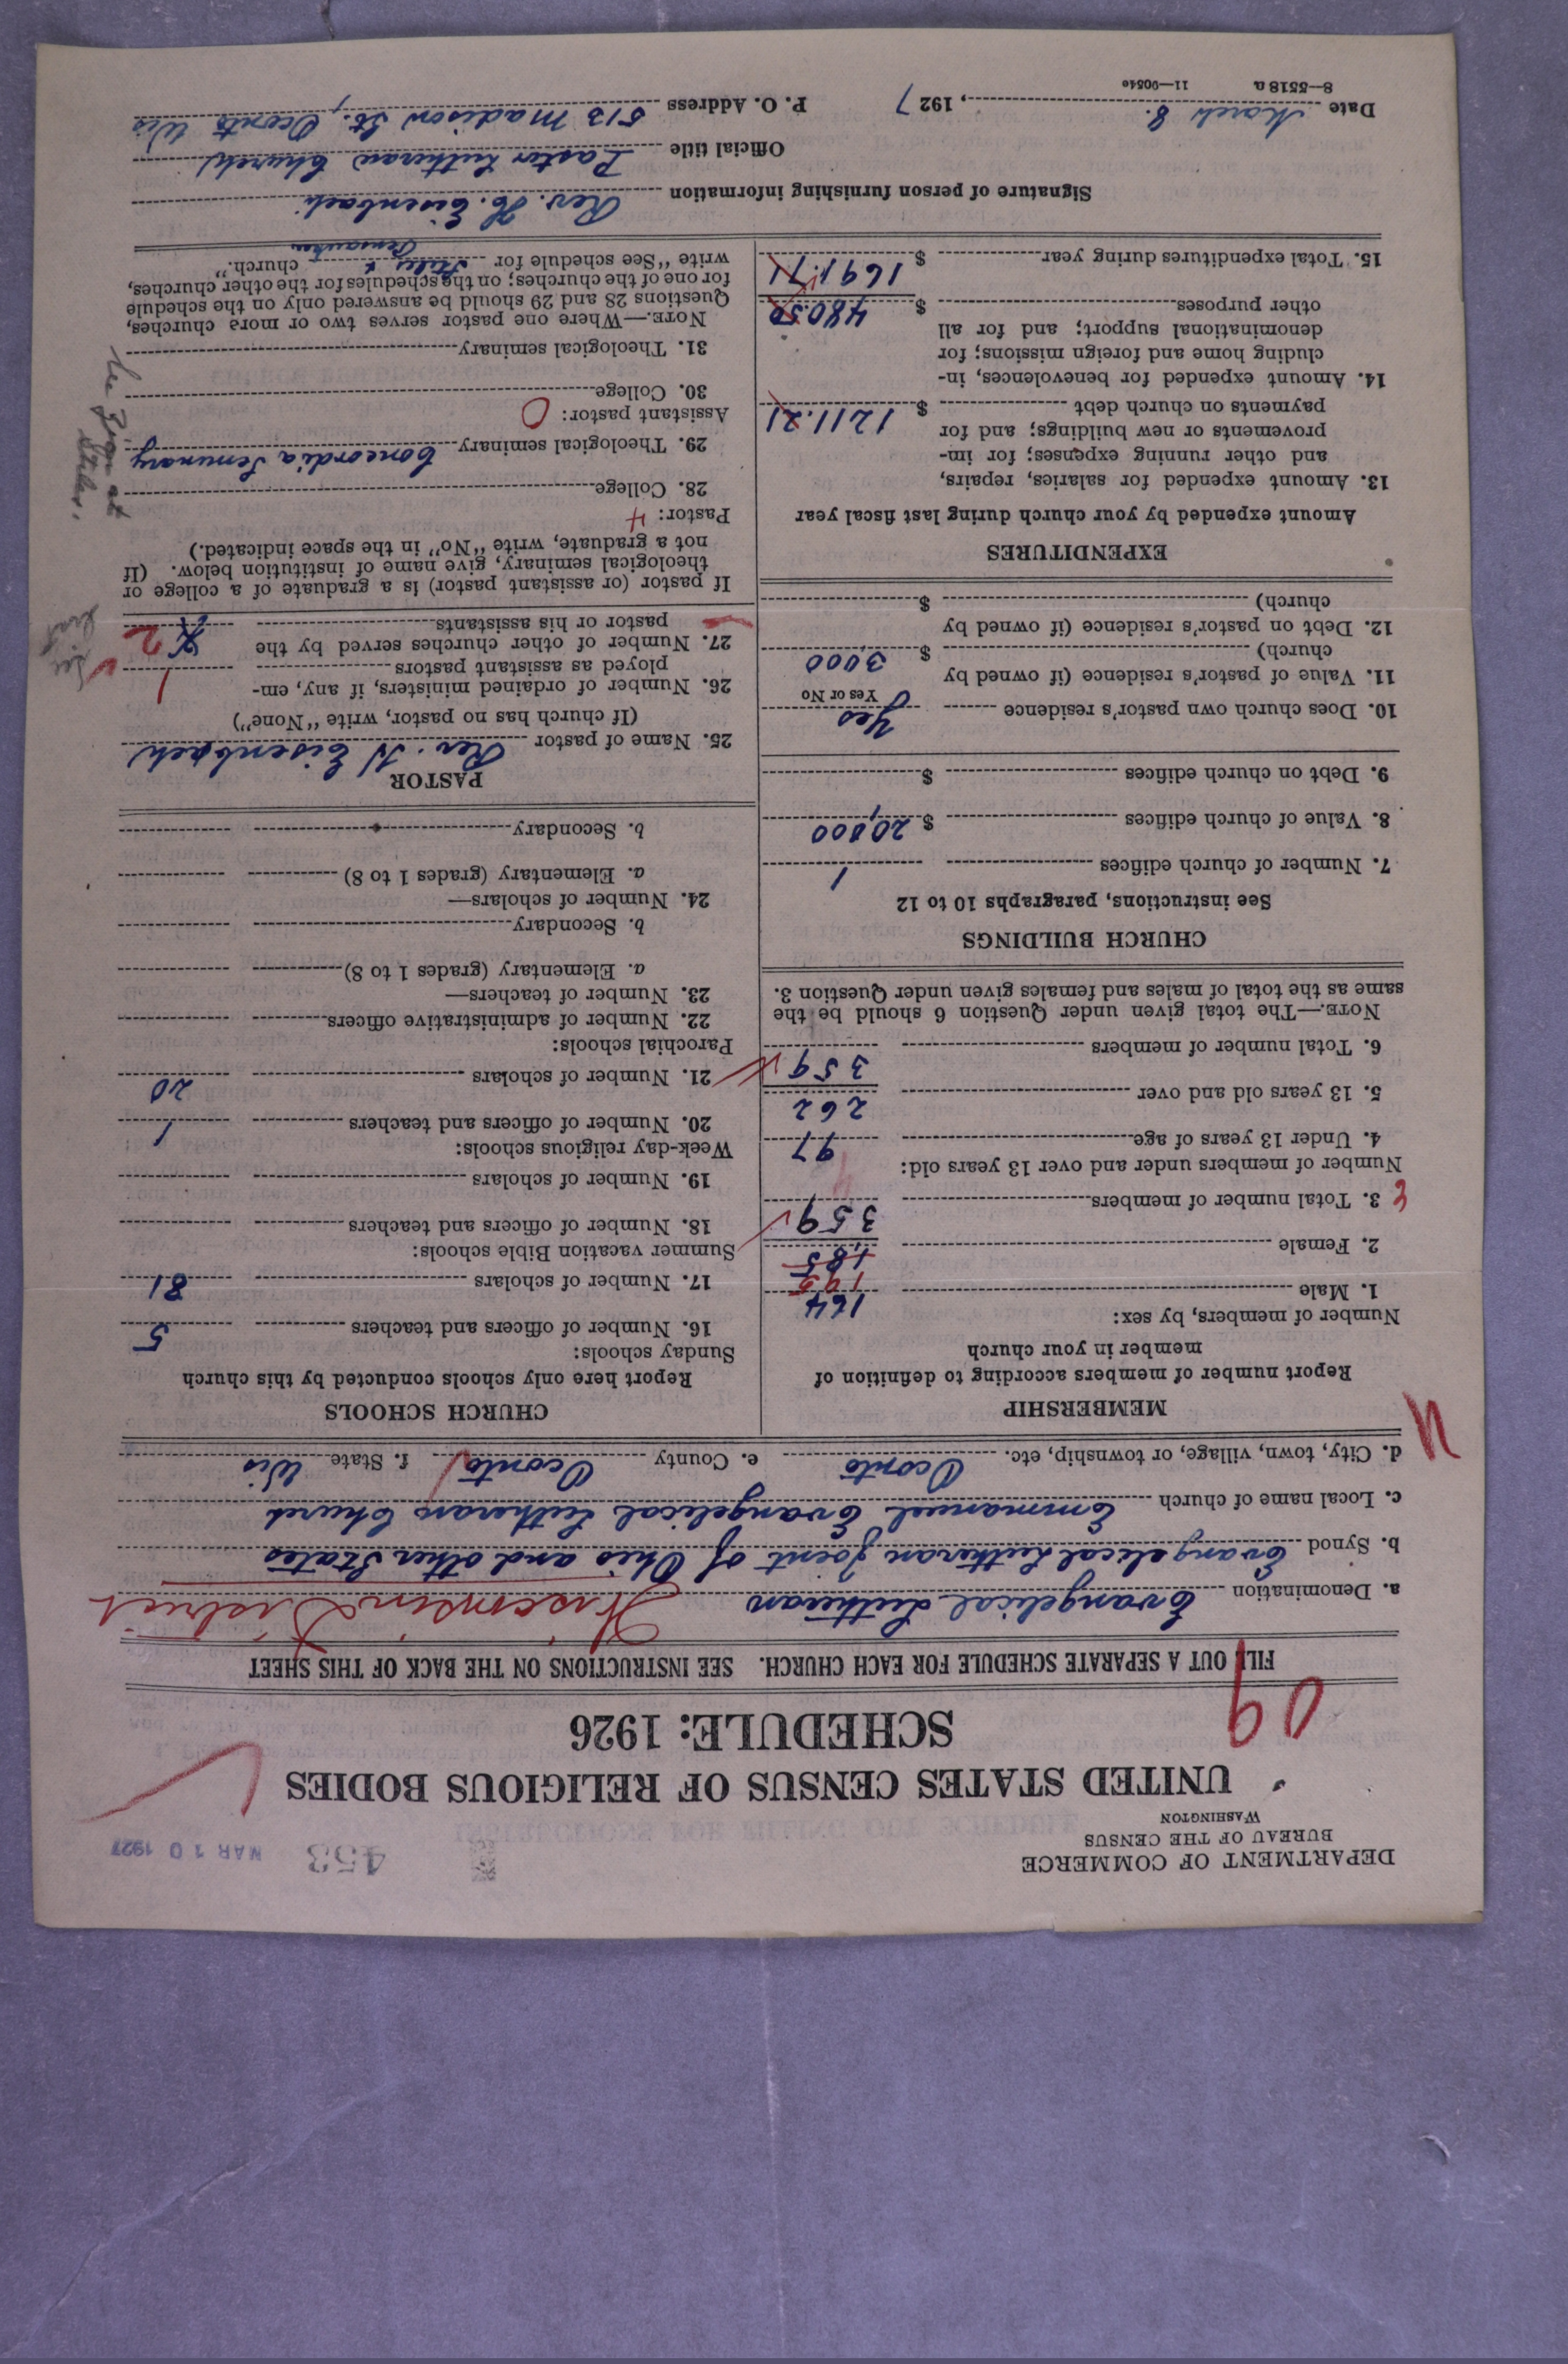 DEPARTMENT OF COMMERCE
BUREAU OF THE CENSUS
WASHINGTON
453
MAR 10 1927
UNITED STATES CENSUS OF RELIGIOUS BODIES
SCHEDULE: 1926
09
FILL OUT A SEPARATE SCHEDULE FOR EACH CHURCH. SEE INSTRUCTIONS ON THE BACK OF THIS SHEET
a. Denomination Evangelical Lutheran Wisconsin District
b. Synod Evangelical Lutheran Joint of Ohio and other States
c. Local name of church Emmanuel Evangelical Lutheran Church
d. City, town, village, or township, etc. Oconto e. County Oconto f. State Wis
MEMBERSHIP
Report number of members according to definition of
member in your church
Number of members, by sex:
1. Male 164
195
2. Female 185
3. Total number of members 359
Number of members under and over 13 years old:
4. Under 13 years of age 97
5. 13 years old and over 262
6. Total number of members 359
NOTE.—The total given under Question 6 should be the
same as the total of males and females given under Question 3.
CHURCH BUILDINGS
See instructions, paragraphs 10 to 12
7. Number of church edifices 1
8. Value of church edifices $ 20,000
9. Debt on church edifices $
10. Does church own pastor's residence Yes
Yes or No
11. Value of pastor's residence (if owned by
church) $ 3000
12. Debt on pastor's residence (if owned by
church) $
EXPENDITURES
Amount expended by your church during last fiscal year
13. Amount expended for salaries, repairs,
and other running expenses; for im-
provements or new buildings; and for
payments on church debt $ 1211.21
14. Amount expended for benevolences, in-
cluding home and foreign missions; for
denominational support; and for all
other purposes $ 480.50
15. Total expenditures during year $ 1691.71
CHURCH SCHOOLS
Report here only schools conducted by this church
Sunday schools:
16. Number of officers and teachers 5
17. Number of scholars 81
Summer vacation Bible schools:
18. Number of officers and teachers
19. Number of scholars
Week-day religious schools:
20. Number of officers and teachers 1
21. Number of scholars 20
Parochial schools:
22. Number of administrative officers
23. Number of teachers—
a. Elementary (grades 1 to 8)
b. Secondary
24. Number of scholars—
a. Elementary (grades 1 to 8)
b. Secondary
PASTOR
25. Name of pastor Rev. H Eisenbach
(If church has no pastor, write "None")
26. Number of ordained ministers, if any, em-
ployed as assistant pastors
27. Number of other churches served by the
pastor or his assistants 2
If pastor (or assistant pastor) is a graduate of a college or
theological seminary, give name of institution below. (If
not a graduate, write "No" in the space indicated.)
Pastor: 4
28. College
29. Theological seminary Concordia Seminary
Assistant pastor: 0
30. College
31. Theological seminary
NOTE.—Where one pastor serves two or more churches,
Questions 28 and 29 should be answered only on the schedule
for one of the churches; on the schedules for the other churches,
write "See schedule for Stiles & Pensaukee church."
Signature of person furnishing information Rev. H. Eisenbach
Official title Pastor Lutheran Church
Date March 8., 1927 P. O. Address 513 Madison St., Oconto Wis
8—5518a 11—9054e